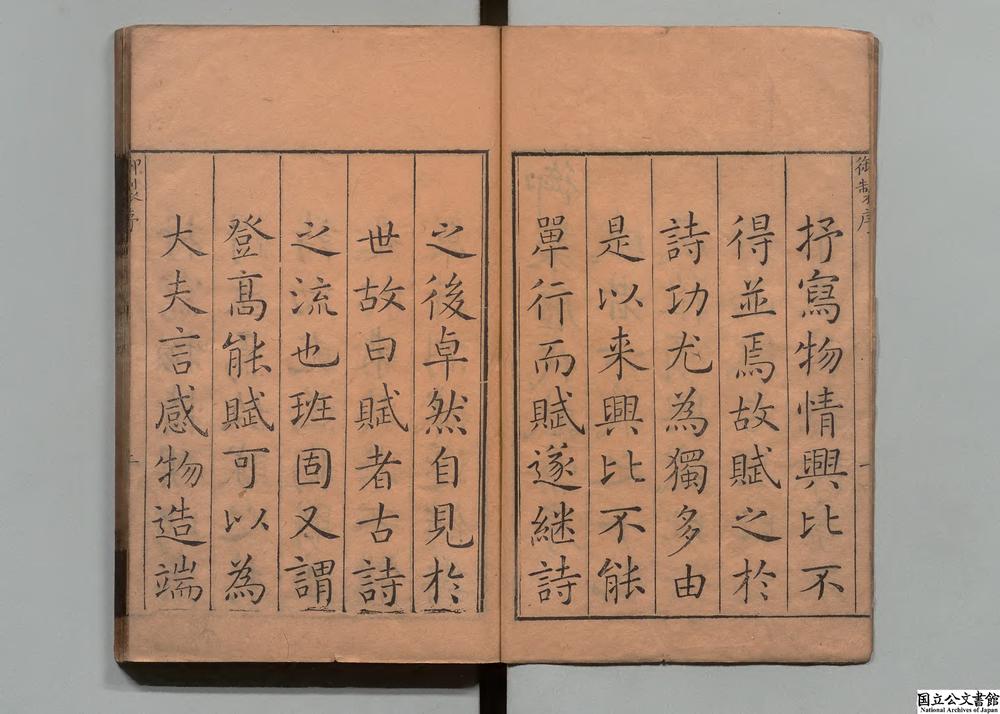 御製序
抒寫物情興比不
得並焉故賦之於
詩功尤為獨多由
是以来興比不能
單行而賦遂継詩
之後卓然自見於
世故曰賦者古詩
之流也班固又謂
登高能賦可以為
大夫言感物造端
御製序
国立公文書館
National Archives of Japan